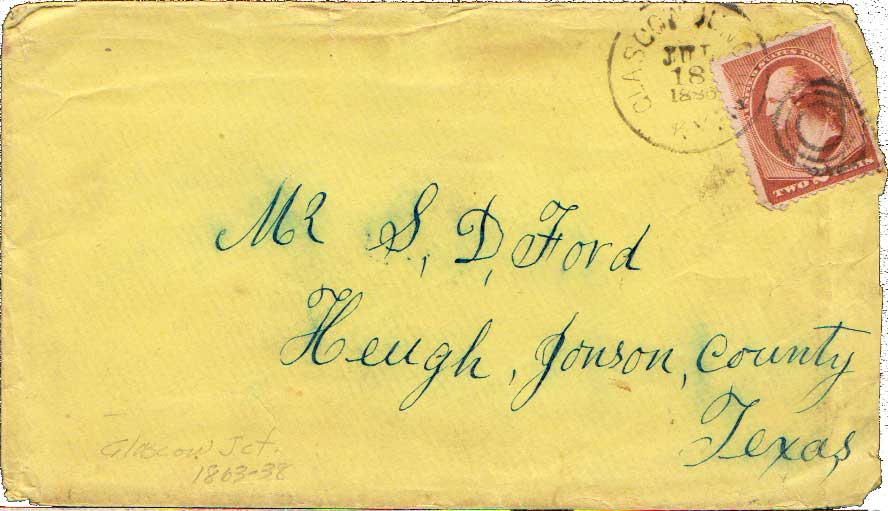 GLASCOW JUNC
JUL
18
1886
KY.
UNITED STATES POSTAGE
TWO 2 CENTS
Mr S, D, Ford
Heugh, Jonson, County
Texas
Glascow Jct.
1863-38